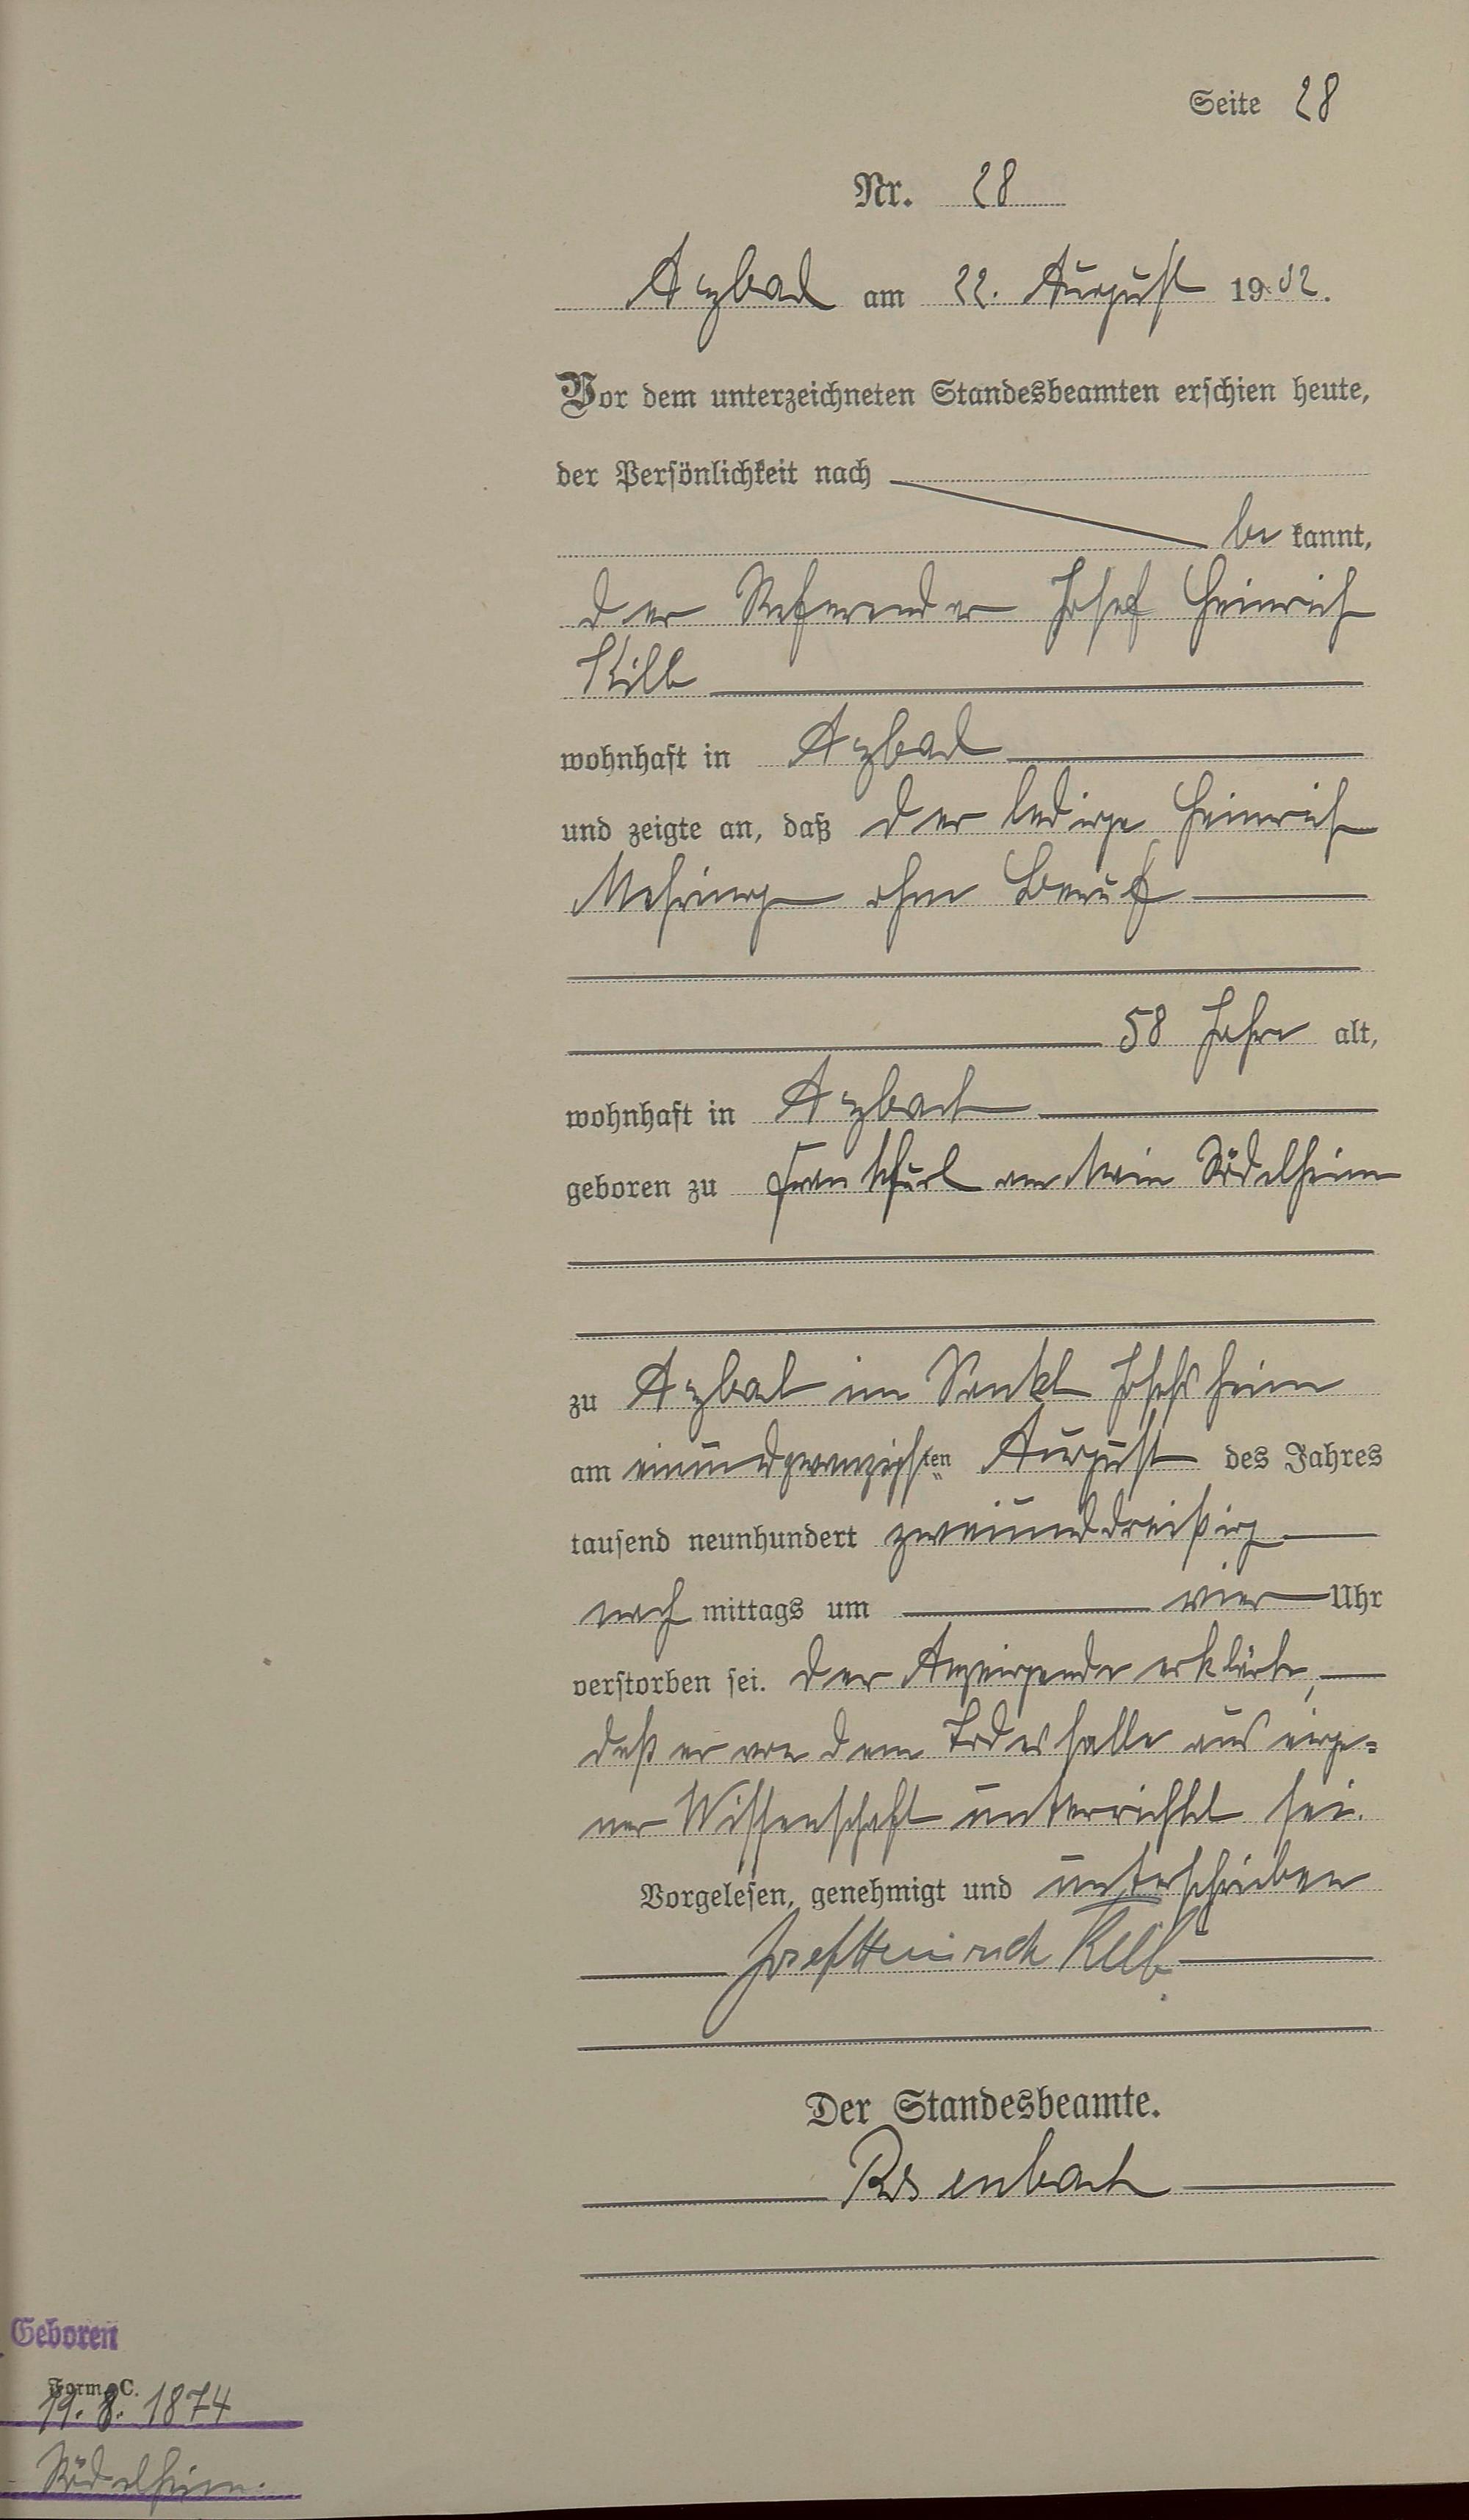 Seite 28
Nr. 28
Arzbach am 22. August 1932.
Vor dem unterzeichneten Standesbeamten erschien heute,
der Persönlichkeit nach
be kannt,
der Josef Heinrich
Kilb
wohnhaft in Arzbach
und zeigte an, daß der ledige Heinrich
Mehring ohne Beruf
58 Jahre alt,
wohnhaft in Arzbach
geboren zu Frankfurt am Main Rödelheim
zu Arzbach im Sankt Josefsheim
am einundzwanzigsten August des Jahres
tausend neunhundert zweiunddreißig
nach mittags um vier Uhr
verstorben sei. Der Anzeigende erklärte,
daß er von dem Todesfalle aus eige=
ner Wissenschaft unterrichtet sei.
Vorgelesen, genehmigt und unterschrieben
Josef Heinrich Kilb
Der Standesbeamte.
Rosenbach
Geboren
Form. C.
19. 8. 1874
Rödelheim.